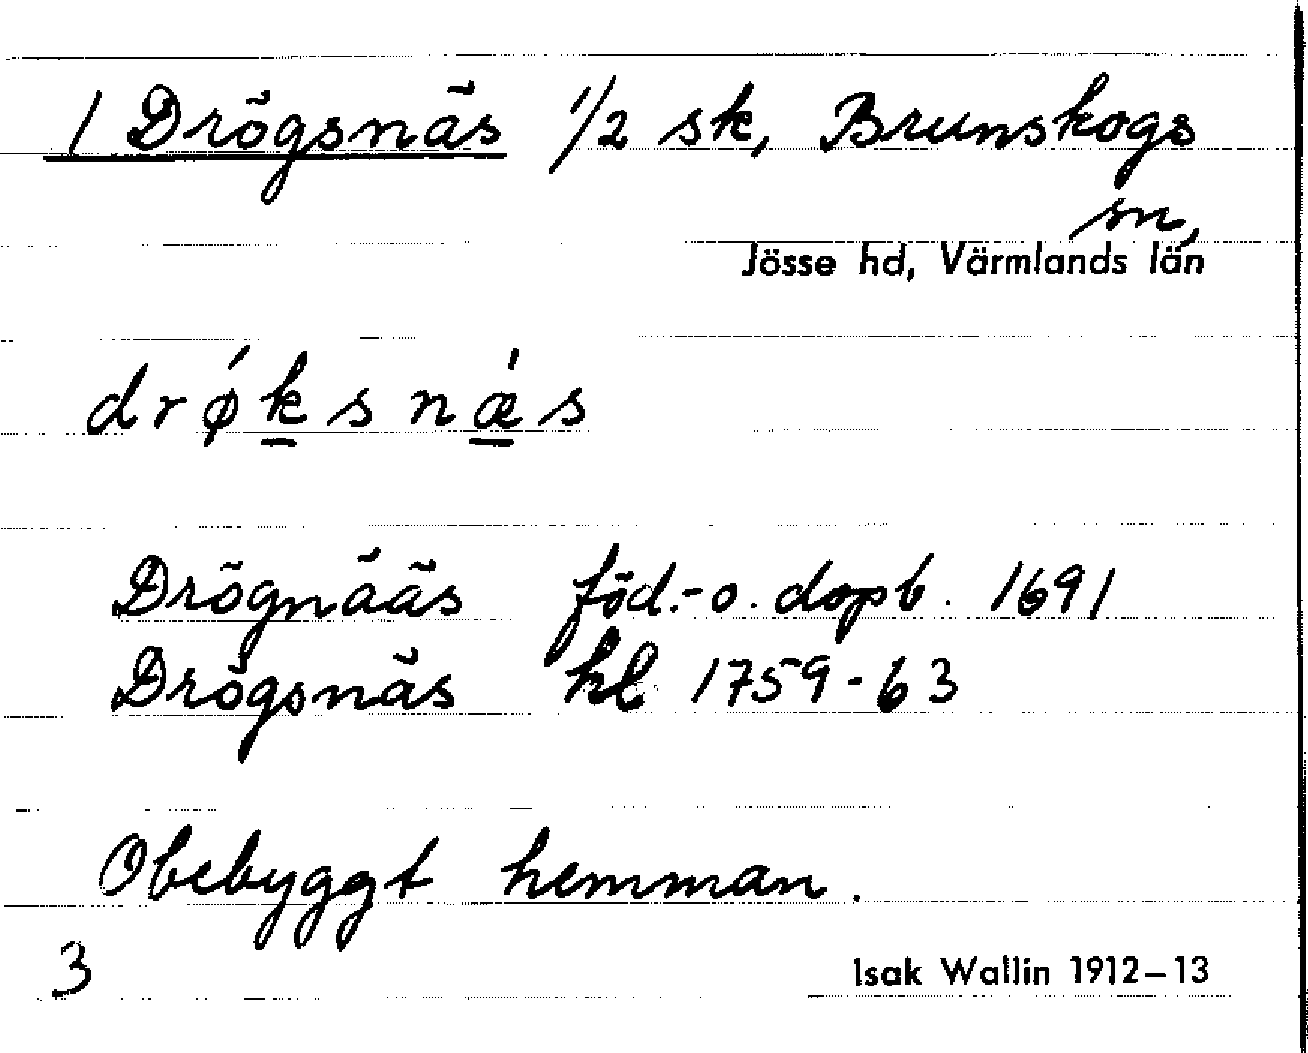 1 Drögsnäs 1/2 sk, Brunskogs
sn,
Jösse hd, Värmlands län
drǿksnǽs
Drögnääs föd.-o. dopb. 1691
Drögsnäs hl 1759-63
Obebyggt hemman.
3
Isak Wallin 1912–13